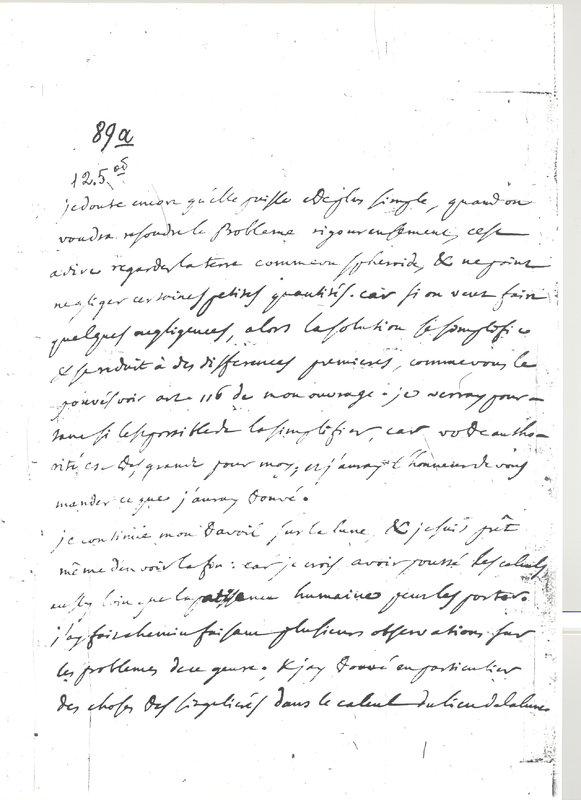 89a
12.5
je doute encore qu'elle puisse etre plus simple, quand on
voudra resoudre le Probleme rigoureusement, c'est
a dire regarder la terre comme un spheroide, & ne point
negliger certaines petites quantités. car si on veut faire
quelques negligences, alors la solution se simplifie
& se reduit à des differences premieres, comme vous le
pouvés voir art 116 de mon ouvrage. je verray pour-
tant si les possible de la simplifier, car votre autho-
rité est tres grande pour moy, et j'auray l'honneur de vous
mander ce que j'auray trouvé.
je continue mon travail sur la lune, & je suis prêt
même d'en voir la fin: car je crois avoir poussé les calculs
aussy loin que la patience humaine peut les porter.
j'ay fait chemin faisant plusieurs observations sur
les problemes de ce genre, & j'ay trouvé en particulier
des choses tres singulieres dans le calcul du lieu de la lune